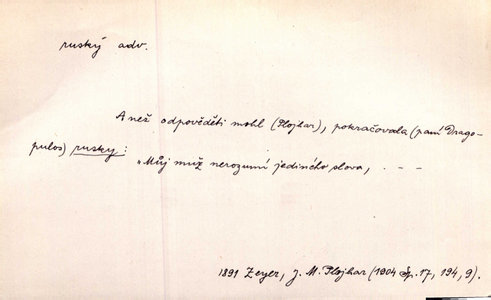 ruský adv.
A než odpověděti mohl (Plojhar), pokračovala (paní Drago-
pulos) rusky:
„Můj muž nerozumí jediného slova, - - -
1891 Zeyer, J. M. Plojhar (1904 Sp. 17, 194, 9).